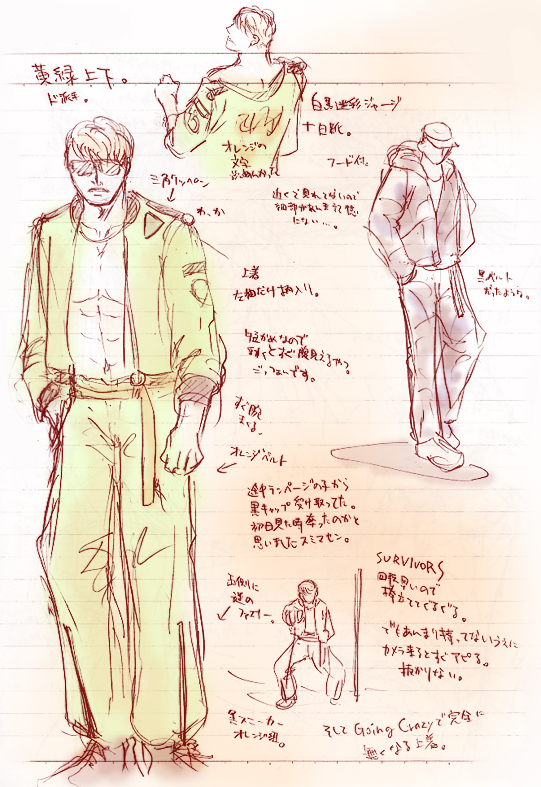 黄緑上下。
ド派手。
三角ワッペン
オレンジの
文字
白黒迷彩ジャージ
十日町。
フード付。
近くで見れてないので
細部があんまり
にない…。
黒ベルト
だったような。
上着
左袖だけ柄入り。
短かめなので
すぐ腹見えるやつ。
ごっつぁんです。
すぐ腕
まくる。
オレンジベルト
途中ランページの子から
黒キャップ受け取ってた。
初日見た時奪ったのかと
思いましたスミマセン。
両側に
謎の
ファスナー。
黒スニーカー
オレンジ紐。
SURVIVORS
回転早いので
棒立ててぐるぐる。
でもあんまり持ってないうえに
カメラ来るとすぐアピる。
抜かりない。
そして Going Crazyで完全に
無くなる上着。